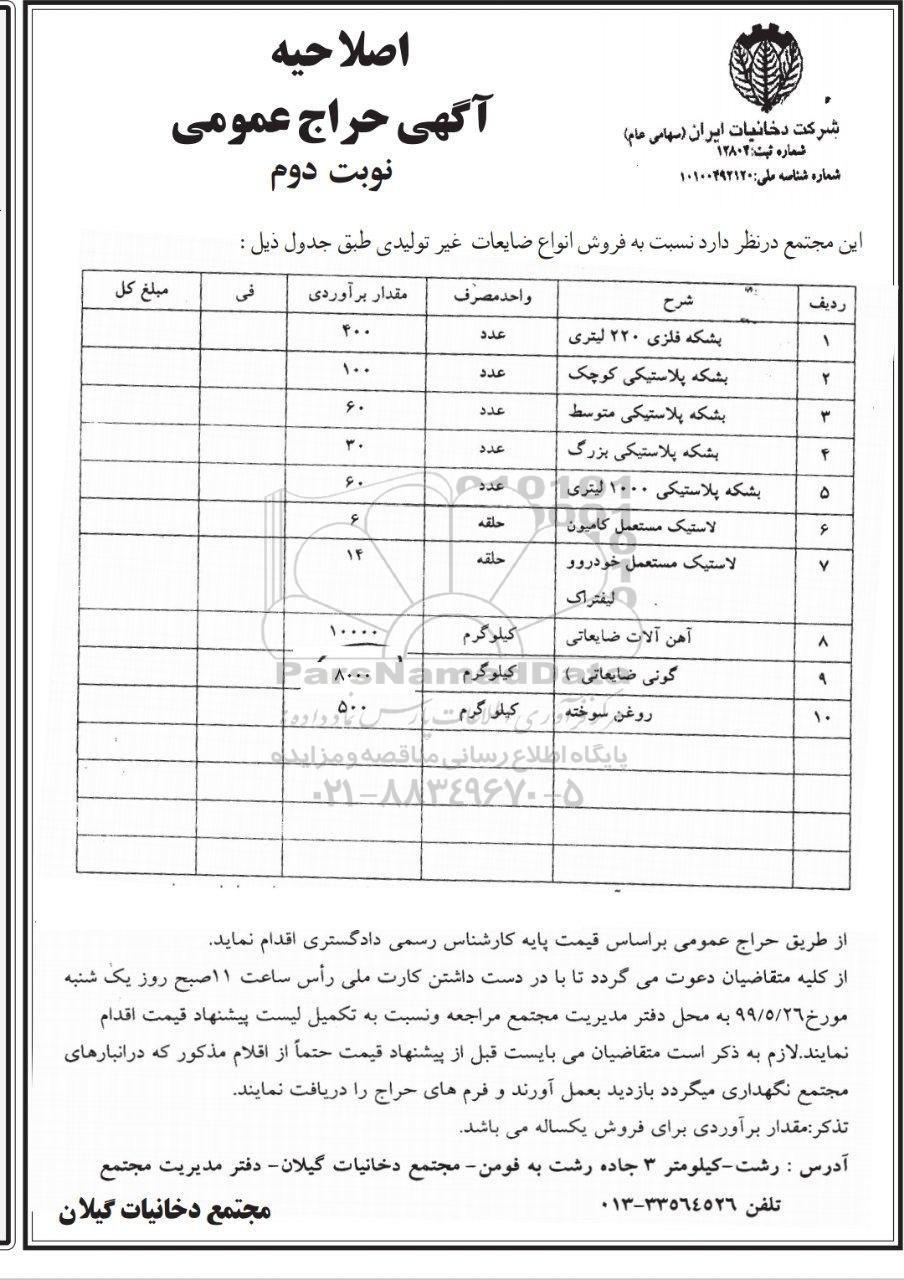 اصلاحیه
آگهی حراج عمومی
نوبت دوم
شرکت دخانیات ایران (سهامی عام)
شماره ثبت:۱۲۸۰۴
شماره شناسه ملی:۱۰۱۰۰۴۹۲۱۲۰
این مجتمع درنظر دارد نسبت به فروش انواع ضایعات غیر تولیدی طبق جدول ذیل :
ردیف شرح واحدمصرف مقدار برآوردی فی مبلغ کل
۱ بشکه فلزی ۲۲۰ لیتری عدد ۴۰۰
۲ بشکه پلاستیکی کوچک عدد ۱۰۰
۳ بشکه پلاستیکی متوسط عدد ۶۰
۴ بشکه پلاستیکی بزرگ عدد ۳۰
۵ بشکه پلاستیکی ۱۰۰۰ لیتری عدد ۶۰
۶ لاستیک مستعمل کامیون حلقه ۶
۷ لاستیک مستعمل خودروو حلقه ۱۴
لیفتراک
۸ آهن آلات ضایعاتی کیلوگرم ۱۰۰۰۰
۹ گونی ضایعاتی ) کیلوگرم ۸۰۰۰
۱۰ روغن سوخته کیلو گرم ۵۰۰
ParsNamadData
پایگاه اطلاع رسانی مناقصه و مزایده
۰۲۱-۸۸۳۴۹۶۷۰-۵
از طریق حراج عمومی براساس قیمت پایه کارشناس رسمی دادگستری اقدام نماید.
از کلیه متقاضیان دعوت می گردد تا با در دست داشتن کارت ملی رأس ساعت ۱۱صبح روز یک شنبه
مورخ۹۹/۵/۲۶ به محل دفتر مدیریت مجتمع مراجعه ونسبت به تکمیل لیست پیشنهاد قیمت اقدام
نمایند.لازم به ذکر است متقاضیان می بایست قبل از پیشنهاد قیمت حتماً از اقلام مذکور که درانبارهای
مجتمع نگهداری میگردد بازدید بعمل آورند و فرم های حراج را دریافت نمایند.
تذکر:مقدار برآوردی برای فروش یکساله می باشد.
آدرس : رشت-کیلومتر ۳ جاده رشت به فومن- مجتمع دخانیات گیلان- دفتر مدیریت مجتمع
تلفن ۳۳۵۶۴۵۲۶-۰۱۳
مجتمع دخانیات گیلان